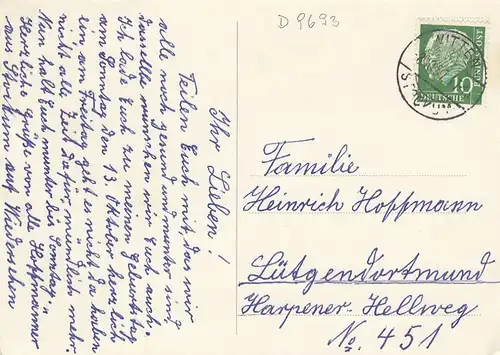 D 9693
Ihr Lieben!
Teilen Euch mit, das wir
alle noch gesund und munter sind,
dasselbe wünschen wir Euch auch.
Ich lade Euch zu meinen Geburtstag
am Sonntag den 13. Oktober herzlich
ein, am Freitag geht es nicht da haben
nicht alle Zeit dafür, mündlich mehr.
Nun halt Euch munter bis Sonntag, u
Herzliche Grüße von alle Hoffmänner
aus Stockum auf Wiedersehen
WITTEN
10
DEUTSCHE
Familie
Heinrich Hoffmann
Lütgendortmund
Harpener-Hellweg
No. 451